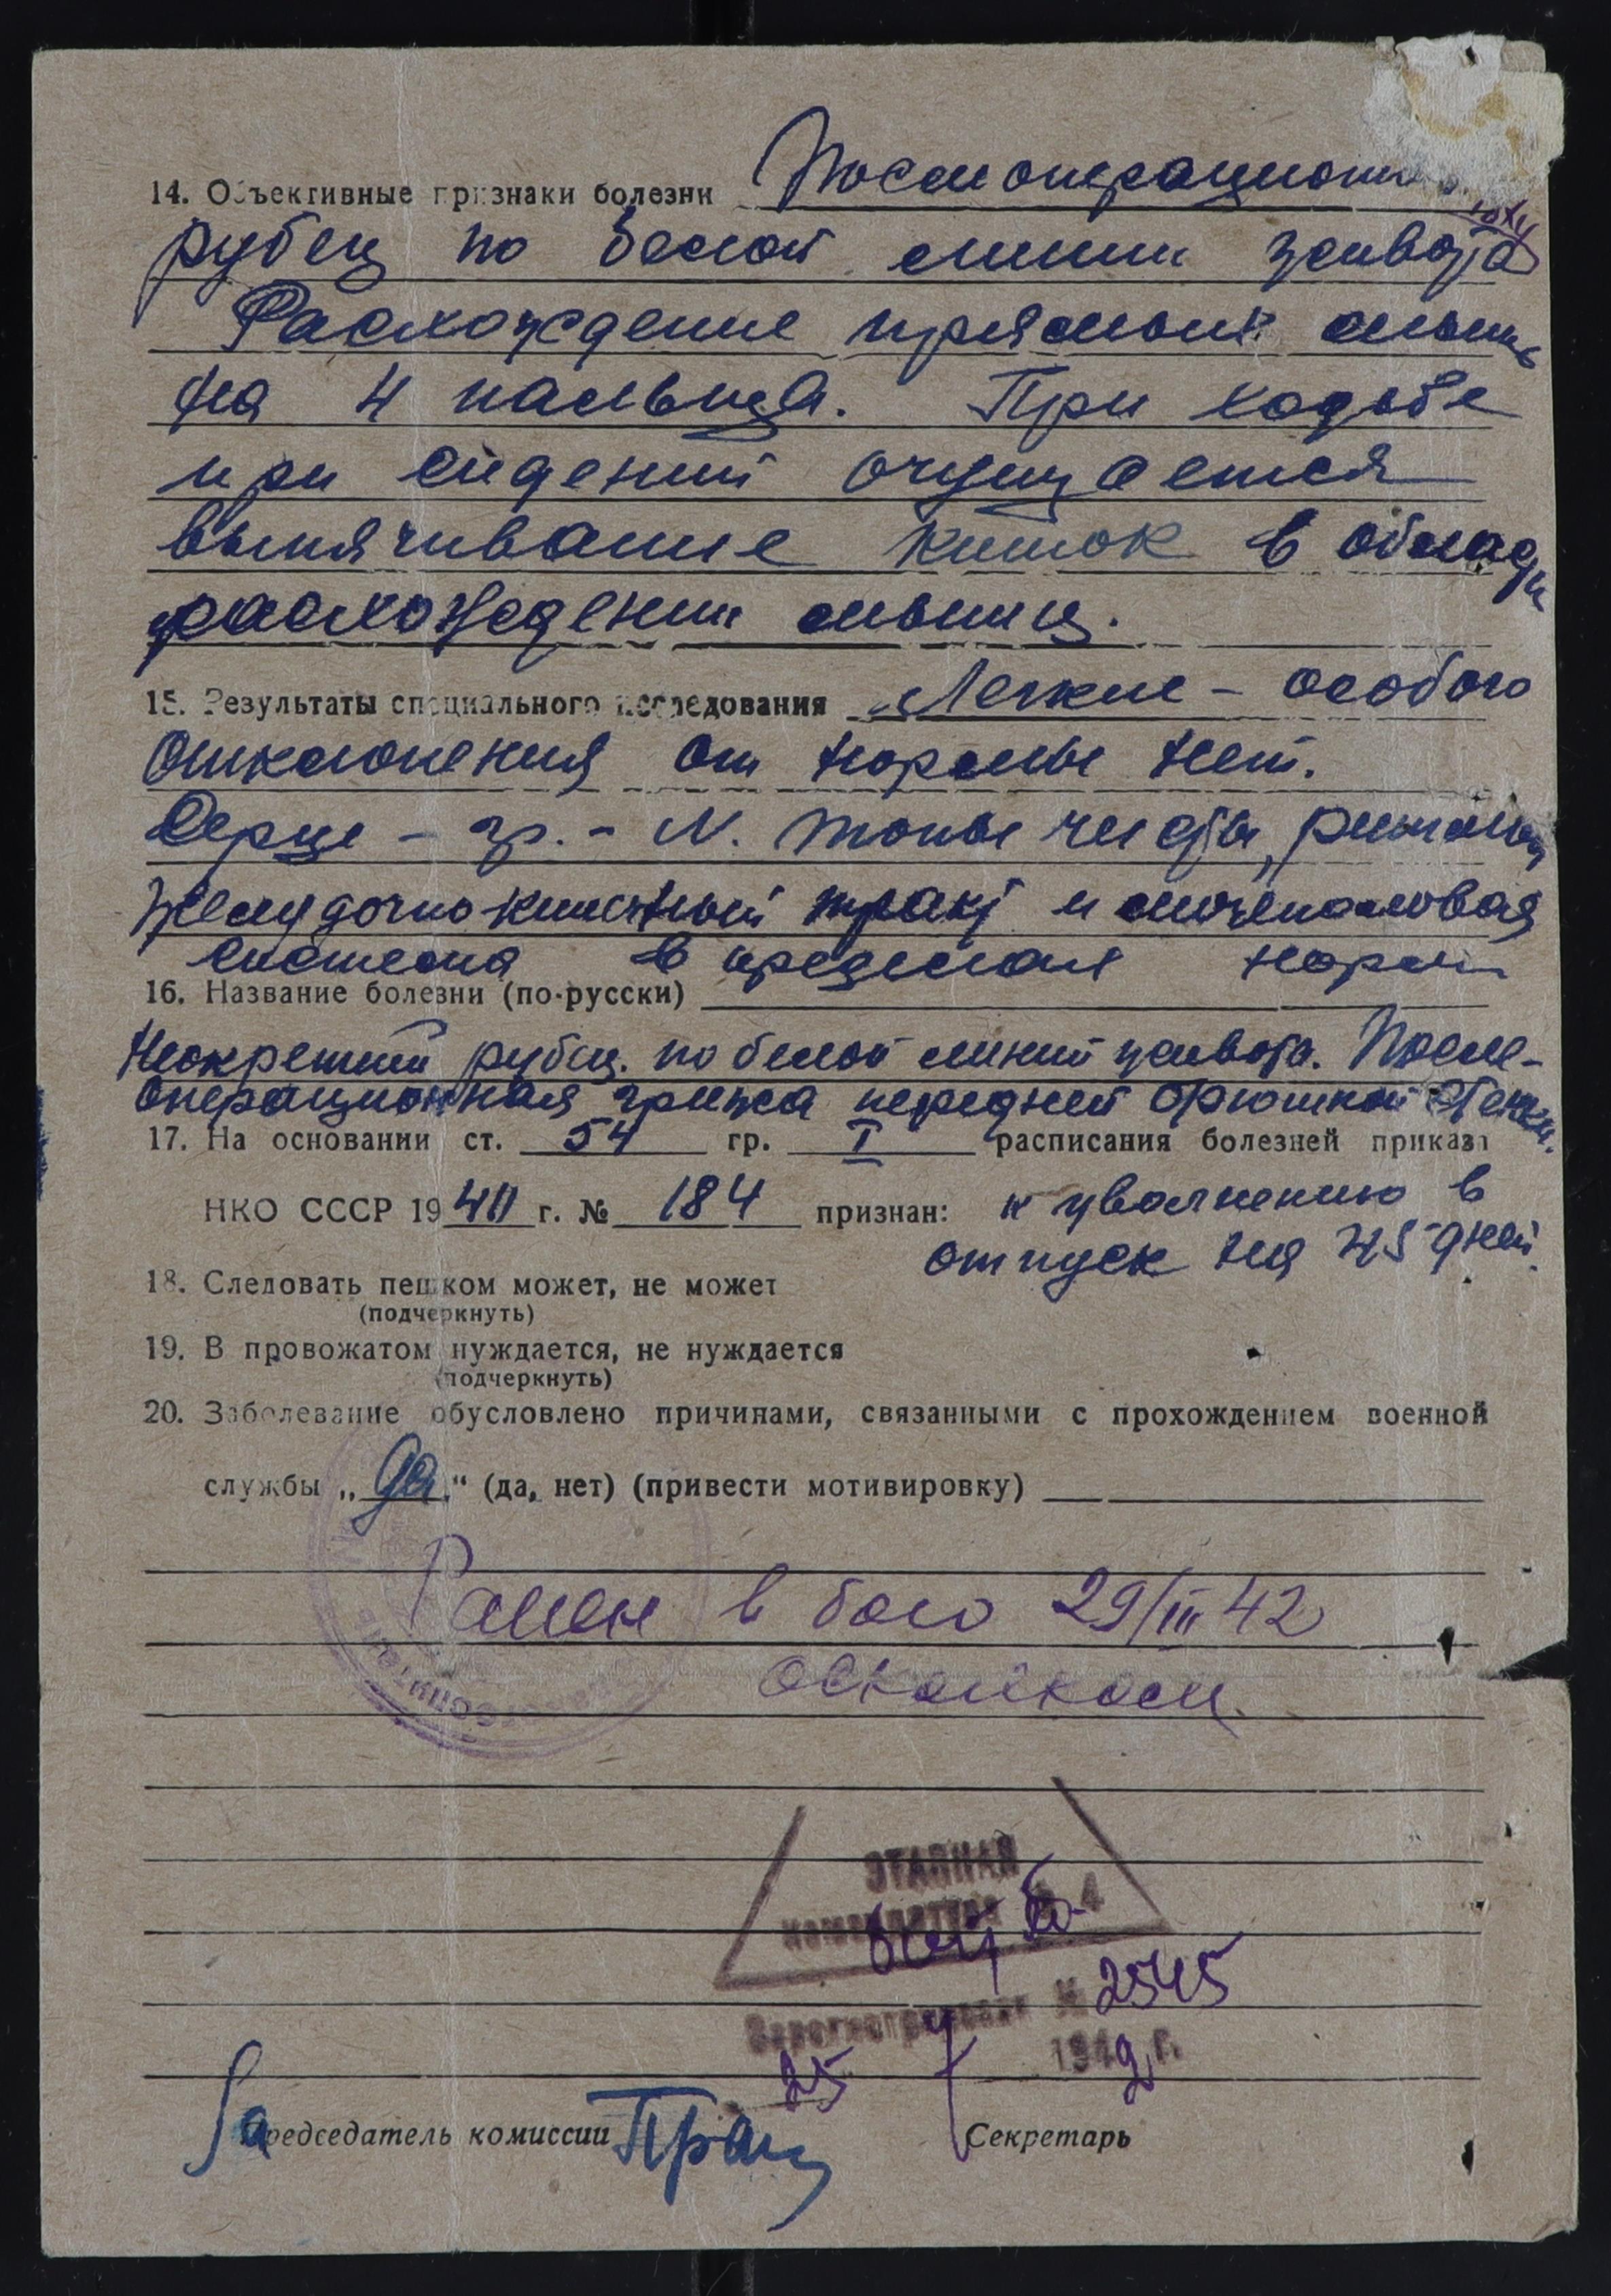 14. Объективные признаки болезни Постоперационный
рубец по белой линии живота
Расхождение прямых мышц
на 4 пальца. При ходьбе
при сидений очущается
выпячивание кишок в области
расхождении мышц.
15. Результаты специального исследования Легкие – особого
отклонения от нормы нет.
Серце – гр. – N. тоны чисты, ритмичн
желудочно кишечный тракт и мочеполовая
система в пределах норм
16. Название болезни (по-русски)
Неокрепший рубец по белой линий живота. После-
операционная грыжа передней брюшной стенки.
17. На основании ст. 54 гр. I расписания болезней приказа
НКО СССР 1940 г. № 184 признан: к уволнению в
отпуск на 45 дней.
18. Следовать пешком может, не может
(подчеркнуть)
19. В провожатом нуждается, не нуждается
(подчеркнуть)
20. Заболевание обусловлено причинами, связанными с прохождением военной
службы „да“ (да, нет) (привести мотивировку)
Ранен в бою 29/III 42
осколком.
ЭТАПНАЯ
комендатура № 4
Зарегистрирован № 2545
25 1942 г.
За Председатель комиссии Секретарь